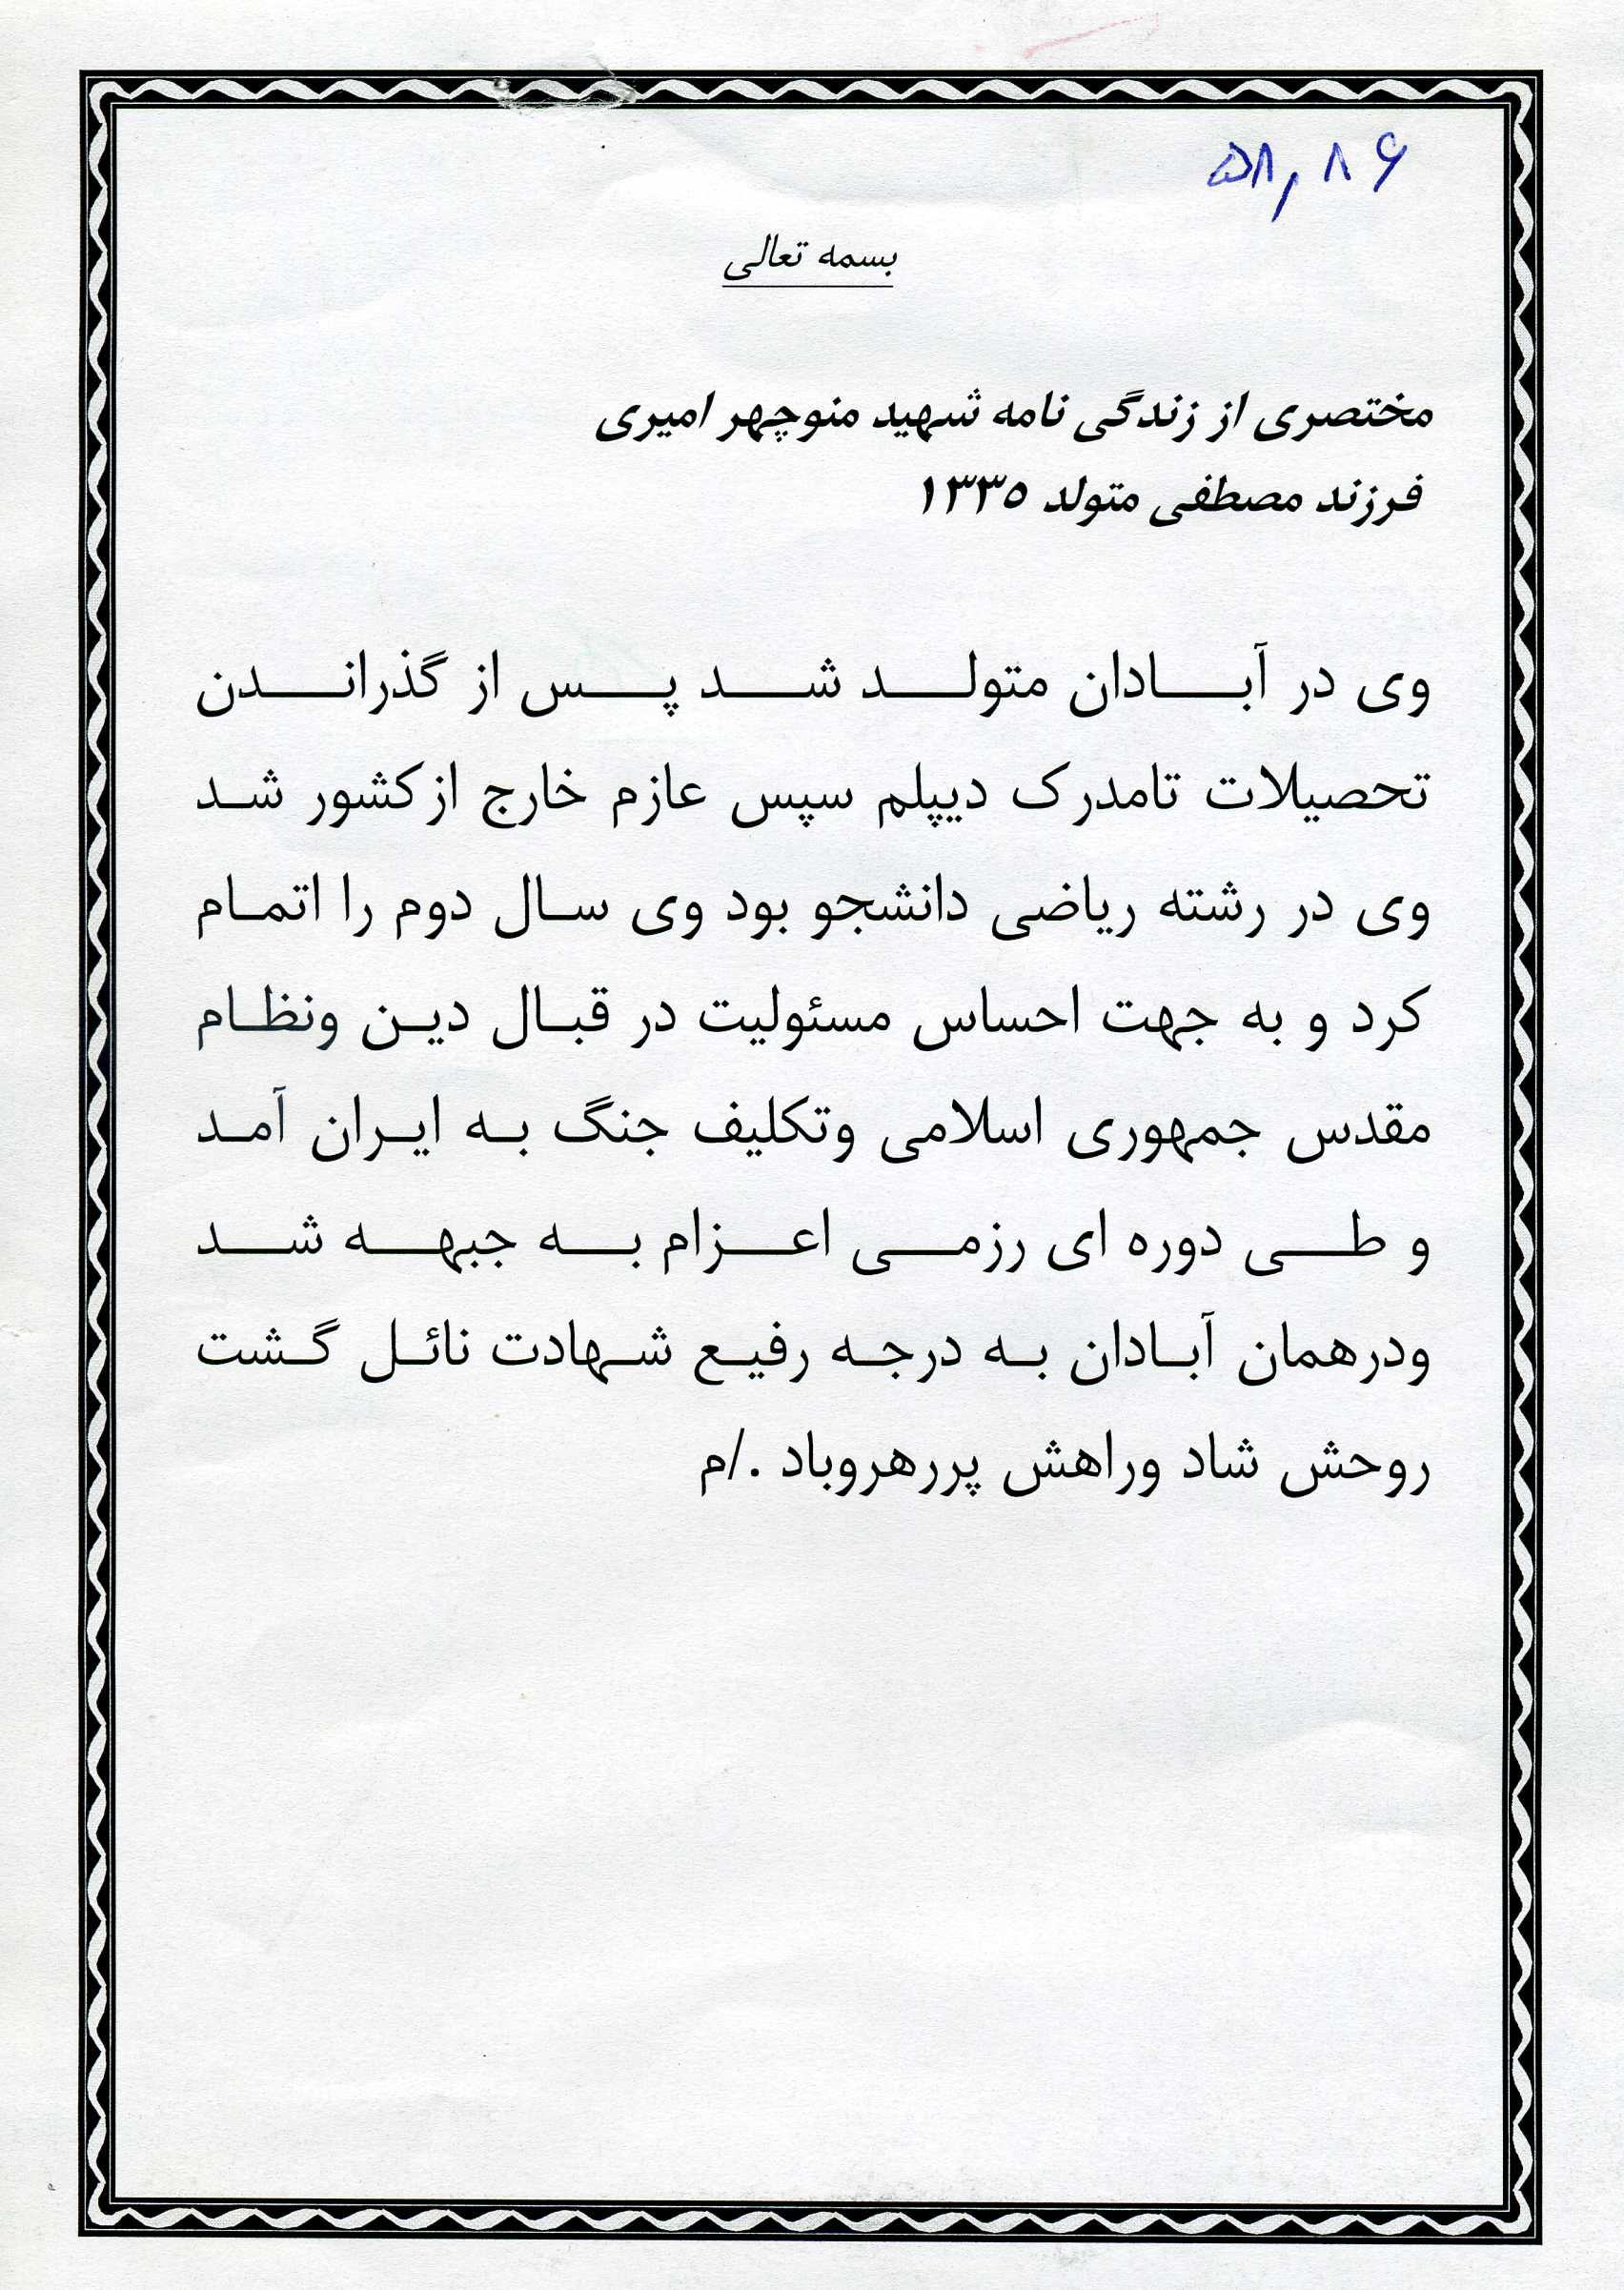 ۵۸,۸۶
بسمه تعالی
مختصری از زندگی نامه شهید منوچهر امیری
فرزند مصطفی متولد ۱۳۳۵
وی در آبادان متولد شد پس از گذراندن
تحصیلات تامدرک دیپلم سپس عازم خارج ازکشور شد
وی در رشته ریاضی دانشجو بود وی سال دوم را اتمام
کرد و به جهت احساس مسئولیت در قبال دین ونظام
مقدس جمهوری اسلامی وتکلیف جنگ به ایران آمد
و طی دوره ای رزمی اعزام به جبهه شد
ودرهمان آبادان به درجه رفیع شهادت نائل گشت
روحش شاد وراهش پررهروباد ./م